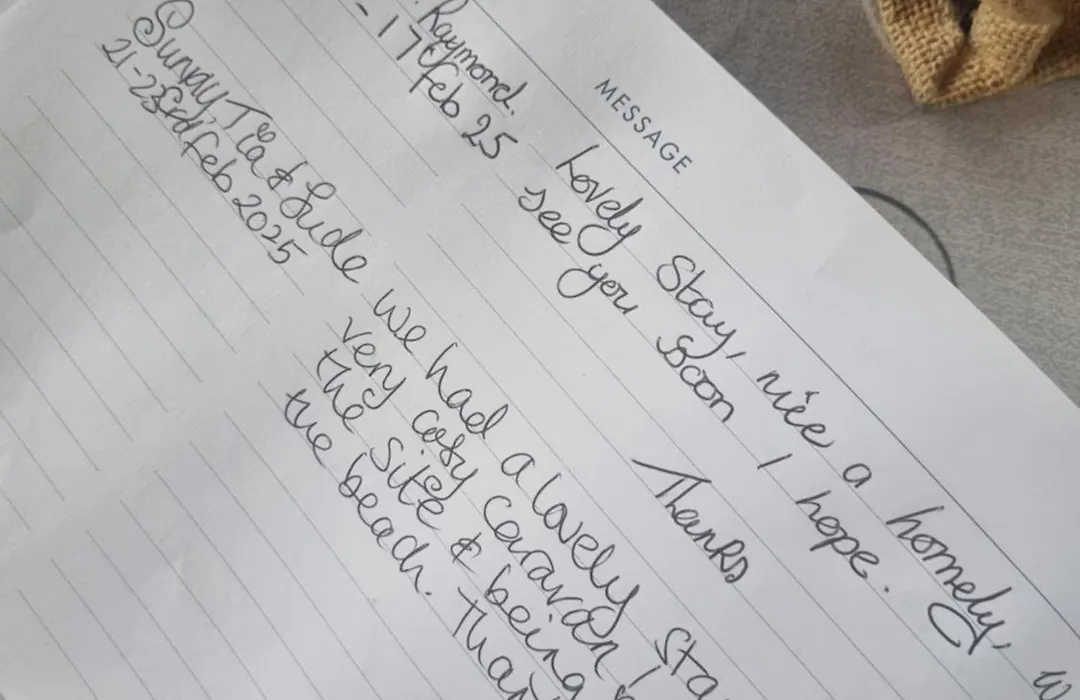 MESSAGE
Raymond. Lovely Stay, nice a homely,
- 17th Feb 25 see you soon I hope.
Thanks
Sunray, Tia & Jude We had a lovely
21-23rd Feb 2025 very cosy caravan
the site & being
the beach.